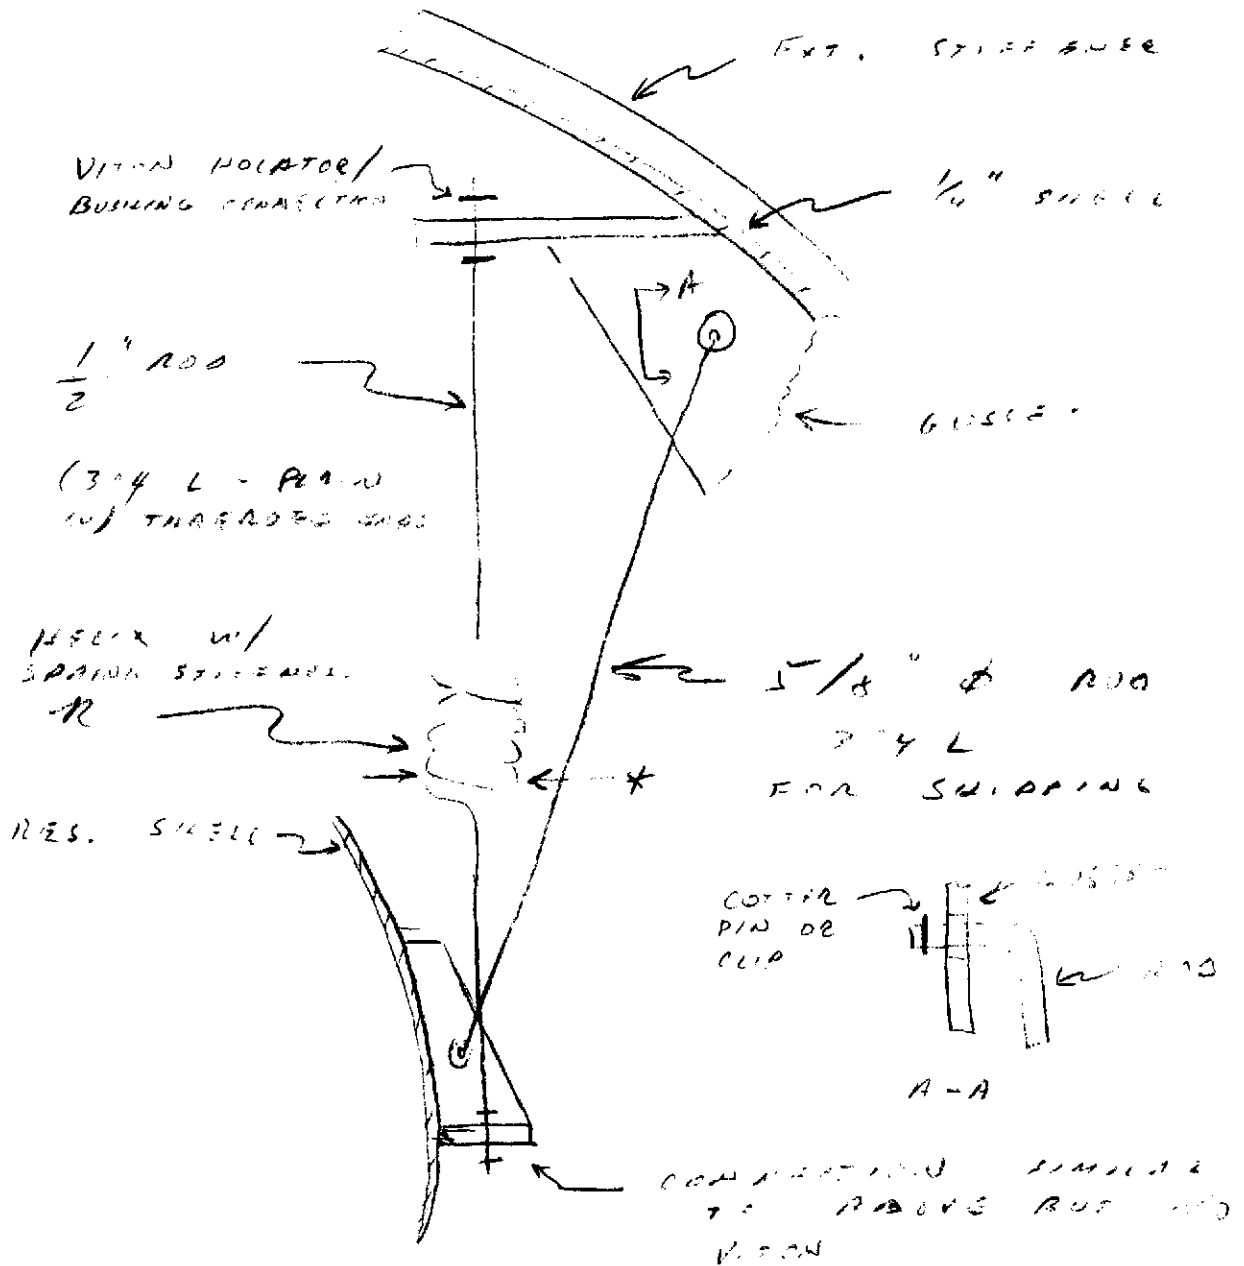 EXT. STIFFENER
VITON ISOLATOR/
BUSHING CONNECTION
1/4" SHELL
A
1/2" ROD
GUSSET
L - PLAIN
W/ THREADED ENDS
HELIX W/
SPRING STIFFNESS
k
5/8" Ø ROD
L
FOR SHIPPING
*
RES. SHELL
COTTER
PIN OR
CLIP
GUSSET
ROD
A-A
CONNECTION SIMILAR
TO ABOVE BUT NO
VITON